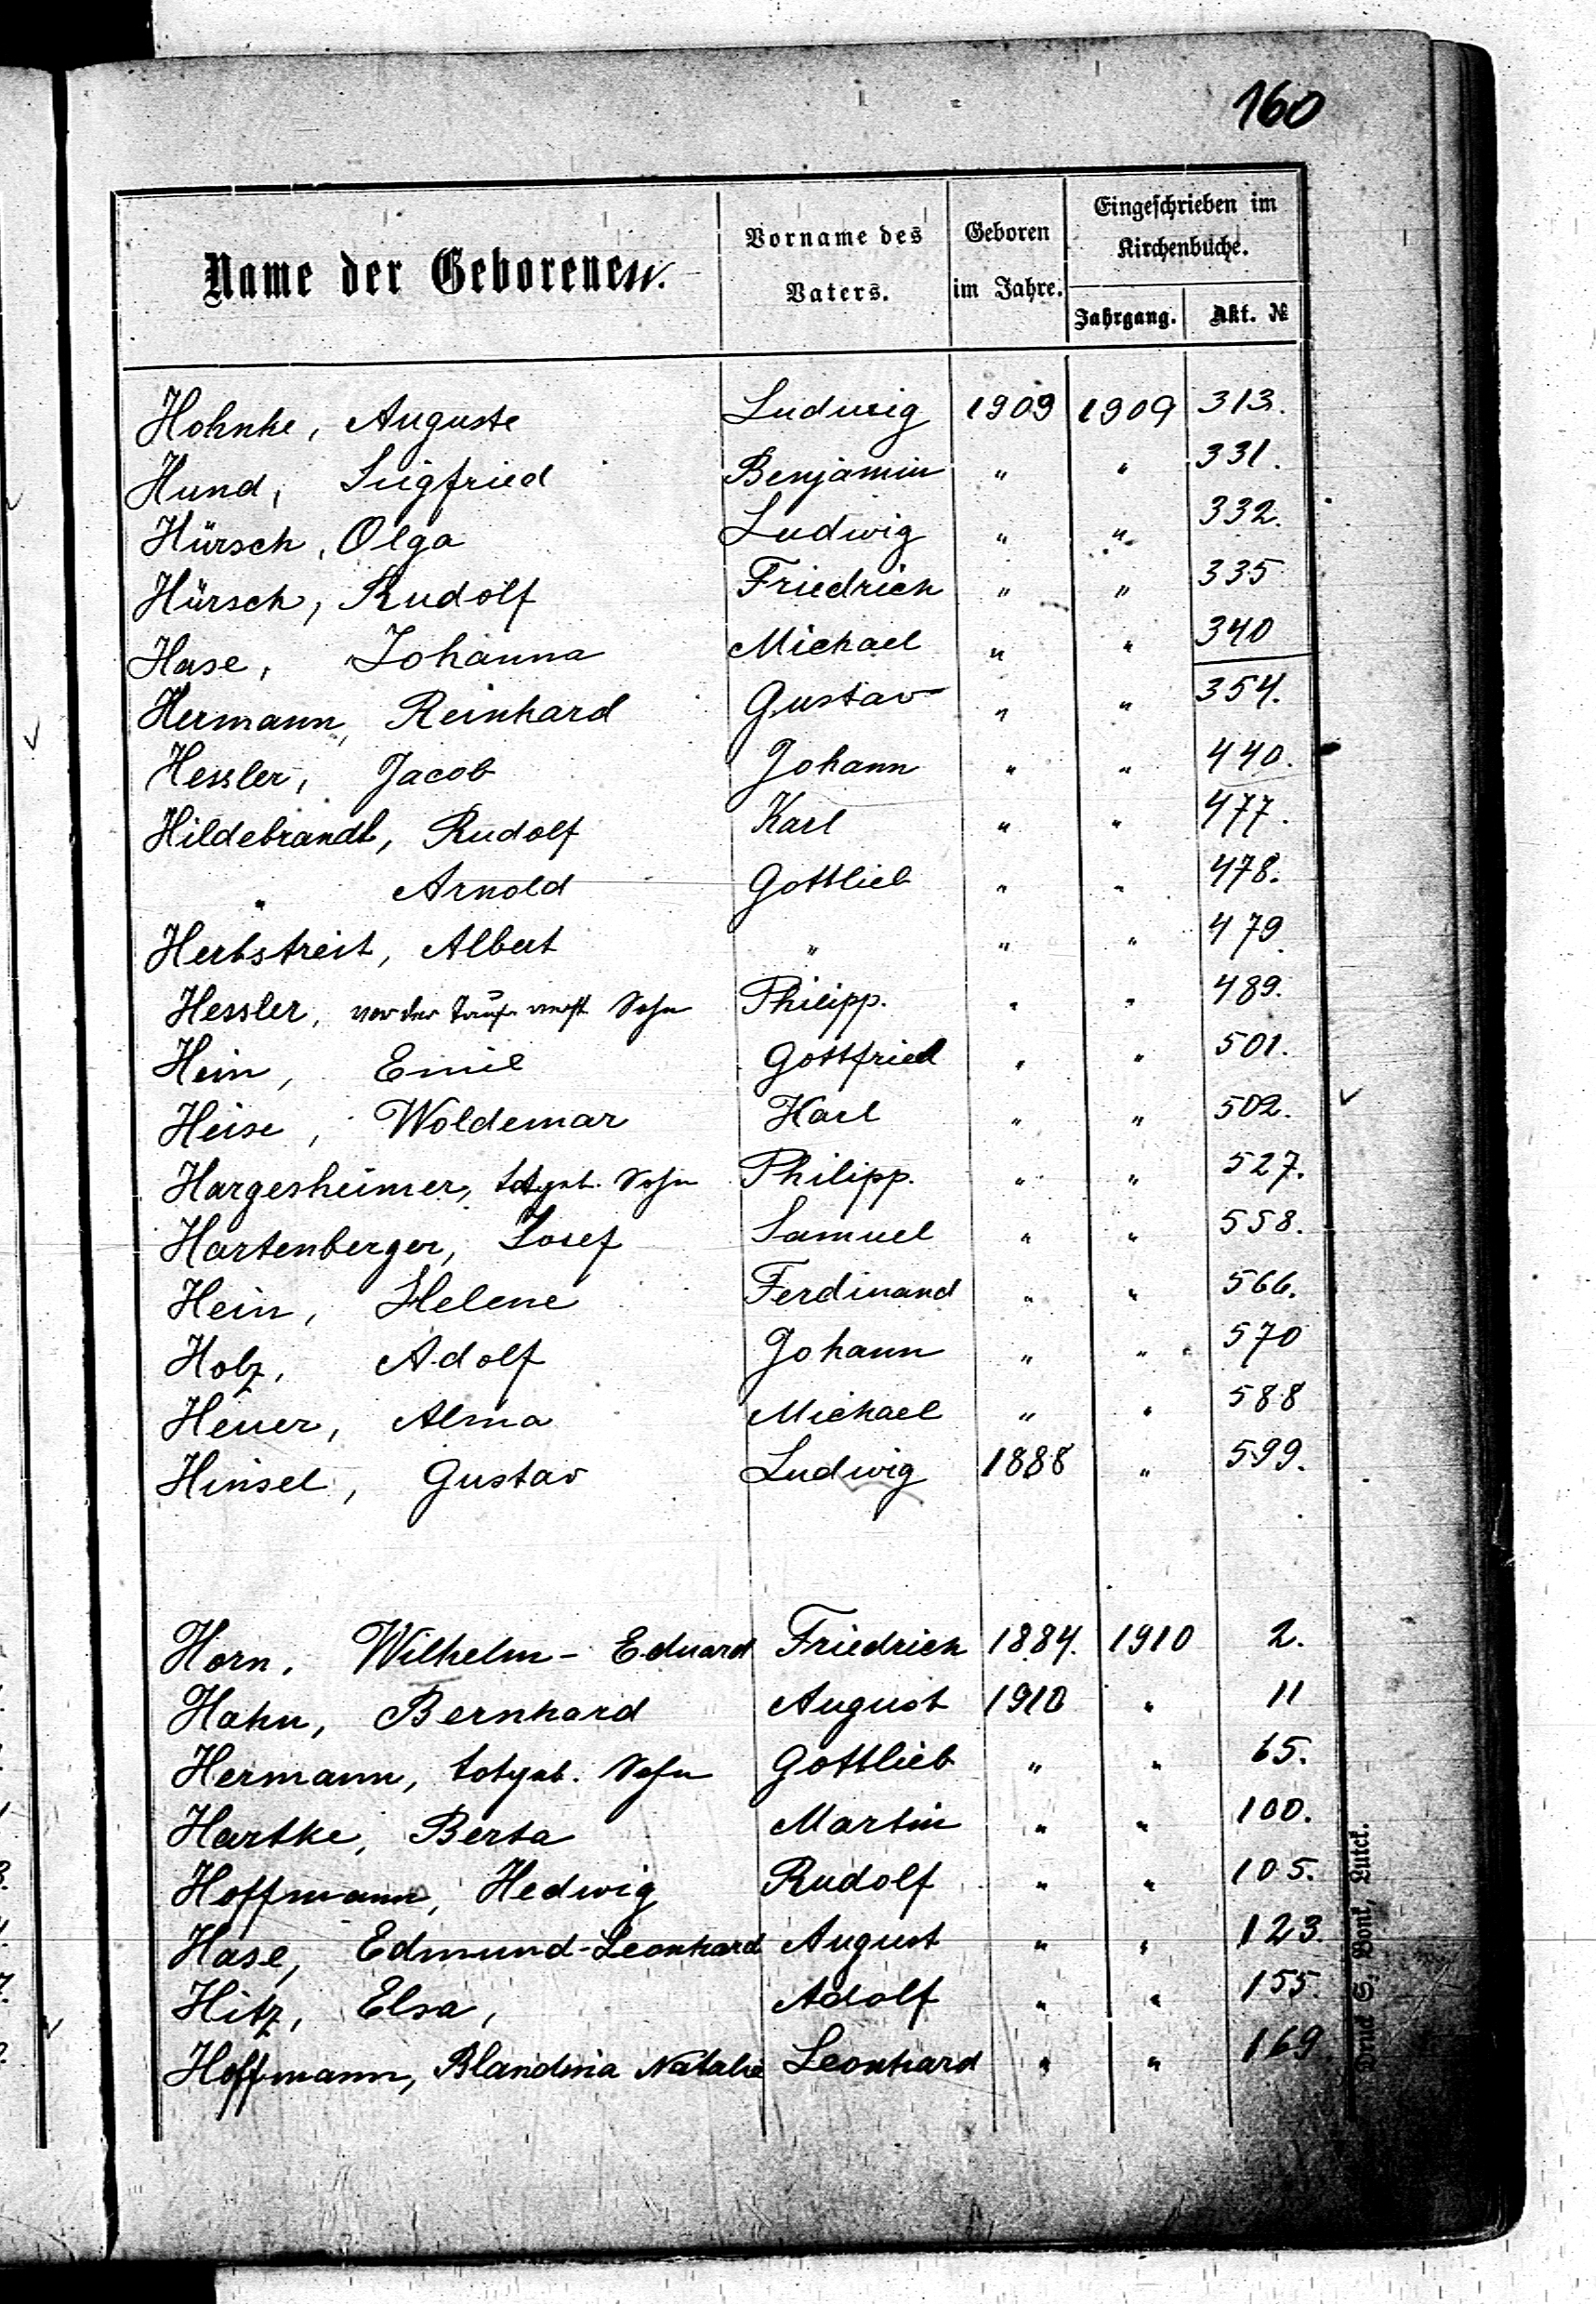 160
Name der Geborenen.
Vorname des Vaters.
Geboren im Jahre.
Eingeschrieben im Kirchenbuche.
Jahrgang. Akt. №
Hohnke, Auguste Ludwig 1909 1909 313.
Hund, Siegfried Benjamin " " 331.
Hürsch, Olga Ludwig " " 332.
Hürsch, Rudolf Friedrich " " 335
Hase, Johanna Michael " " 340
Hermann, Reinhard Gustav " " 354.
Hessler, Jacob Johann " " 440.
Hildebrandt, Rudolf Karl " " 477.
" Arnold Gottlieb " " 478.
Herbstreit, Albert " " " 479.
Hessler, vor der Taufe verst. Sohn Philipp. " " 489.
Hein, Emil Gottfried " " 501.
Heise, Woldemar Karl " " 502.
Hargesheimer, totgeb. Sohn Philipp. " " 527.
Hartenberger, Josef Samuel " " 558.
Hein, Helene Ferdinand " " 566.
Holz, Adolf Johann " " 570
Heuer, Alma Michael " " 588
Hinsel, Gustav Ludwig 1888 " 599.
Horn, Wilhelm-Eduard Friedrich 1884. 1910 2.
Hahn, Bernhard August 1910 " 11
Hermann, totgeb. Sohn Gottlieb " " 65.
Hartke, Berta Martin " " 100.
Hoffmann, Hedwig Rudolf " " 105.
Hase, Edmund-Leonhard August " " 123.
Hitz, Elsa, Adolf " " 155.
Hoffmann, Blandina Natalie Leonhard " " 169
Druck S. Bonk, Lutck.